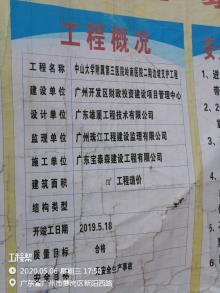 工程概况
工程名称 中山大学附属第三医院岭南医院二期边坡支护工程
建设单位 广州开发区财政投资建设项目管理中心
设计单位 广东雄厦工程技术有限公司
监理单位 广州珠江工程建设监理有限公司
施工单位 广东宝泰森建设工程有限公司
建筑面积 ㎡ 工程造价
结构类型
开竣工日期 2019.5.18
质量目标 合格
安全生产事故
工程帮
2020.05.06 星期三 17:5
广东省广州市萝岗区新阳西路